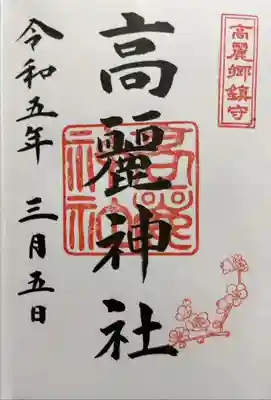 高麗郷鎮守
高麗神社
高麗神社
令和五年 三月五日